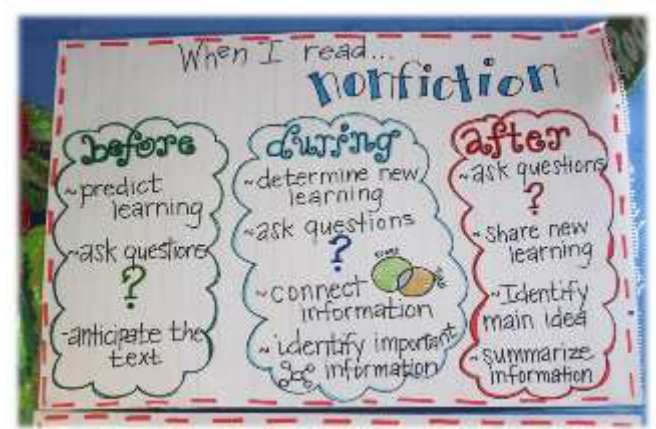 When I read...
nonfiction
before
~predict
learning
~ask questions
?
-anticipate the
text
during
~determine new
learning
~ask questions
?
~connect
information
~identify important
information
after
~ask questions
?
~share new
learning
~Identify
main idea
~summarize
information